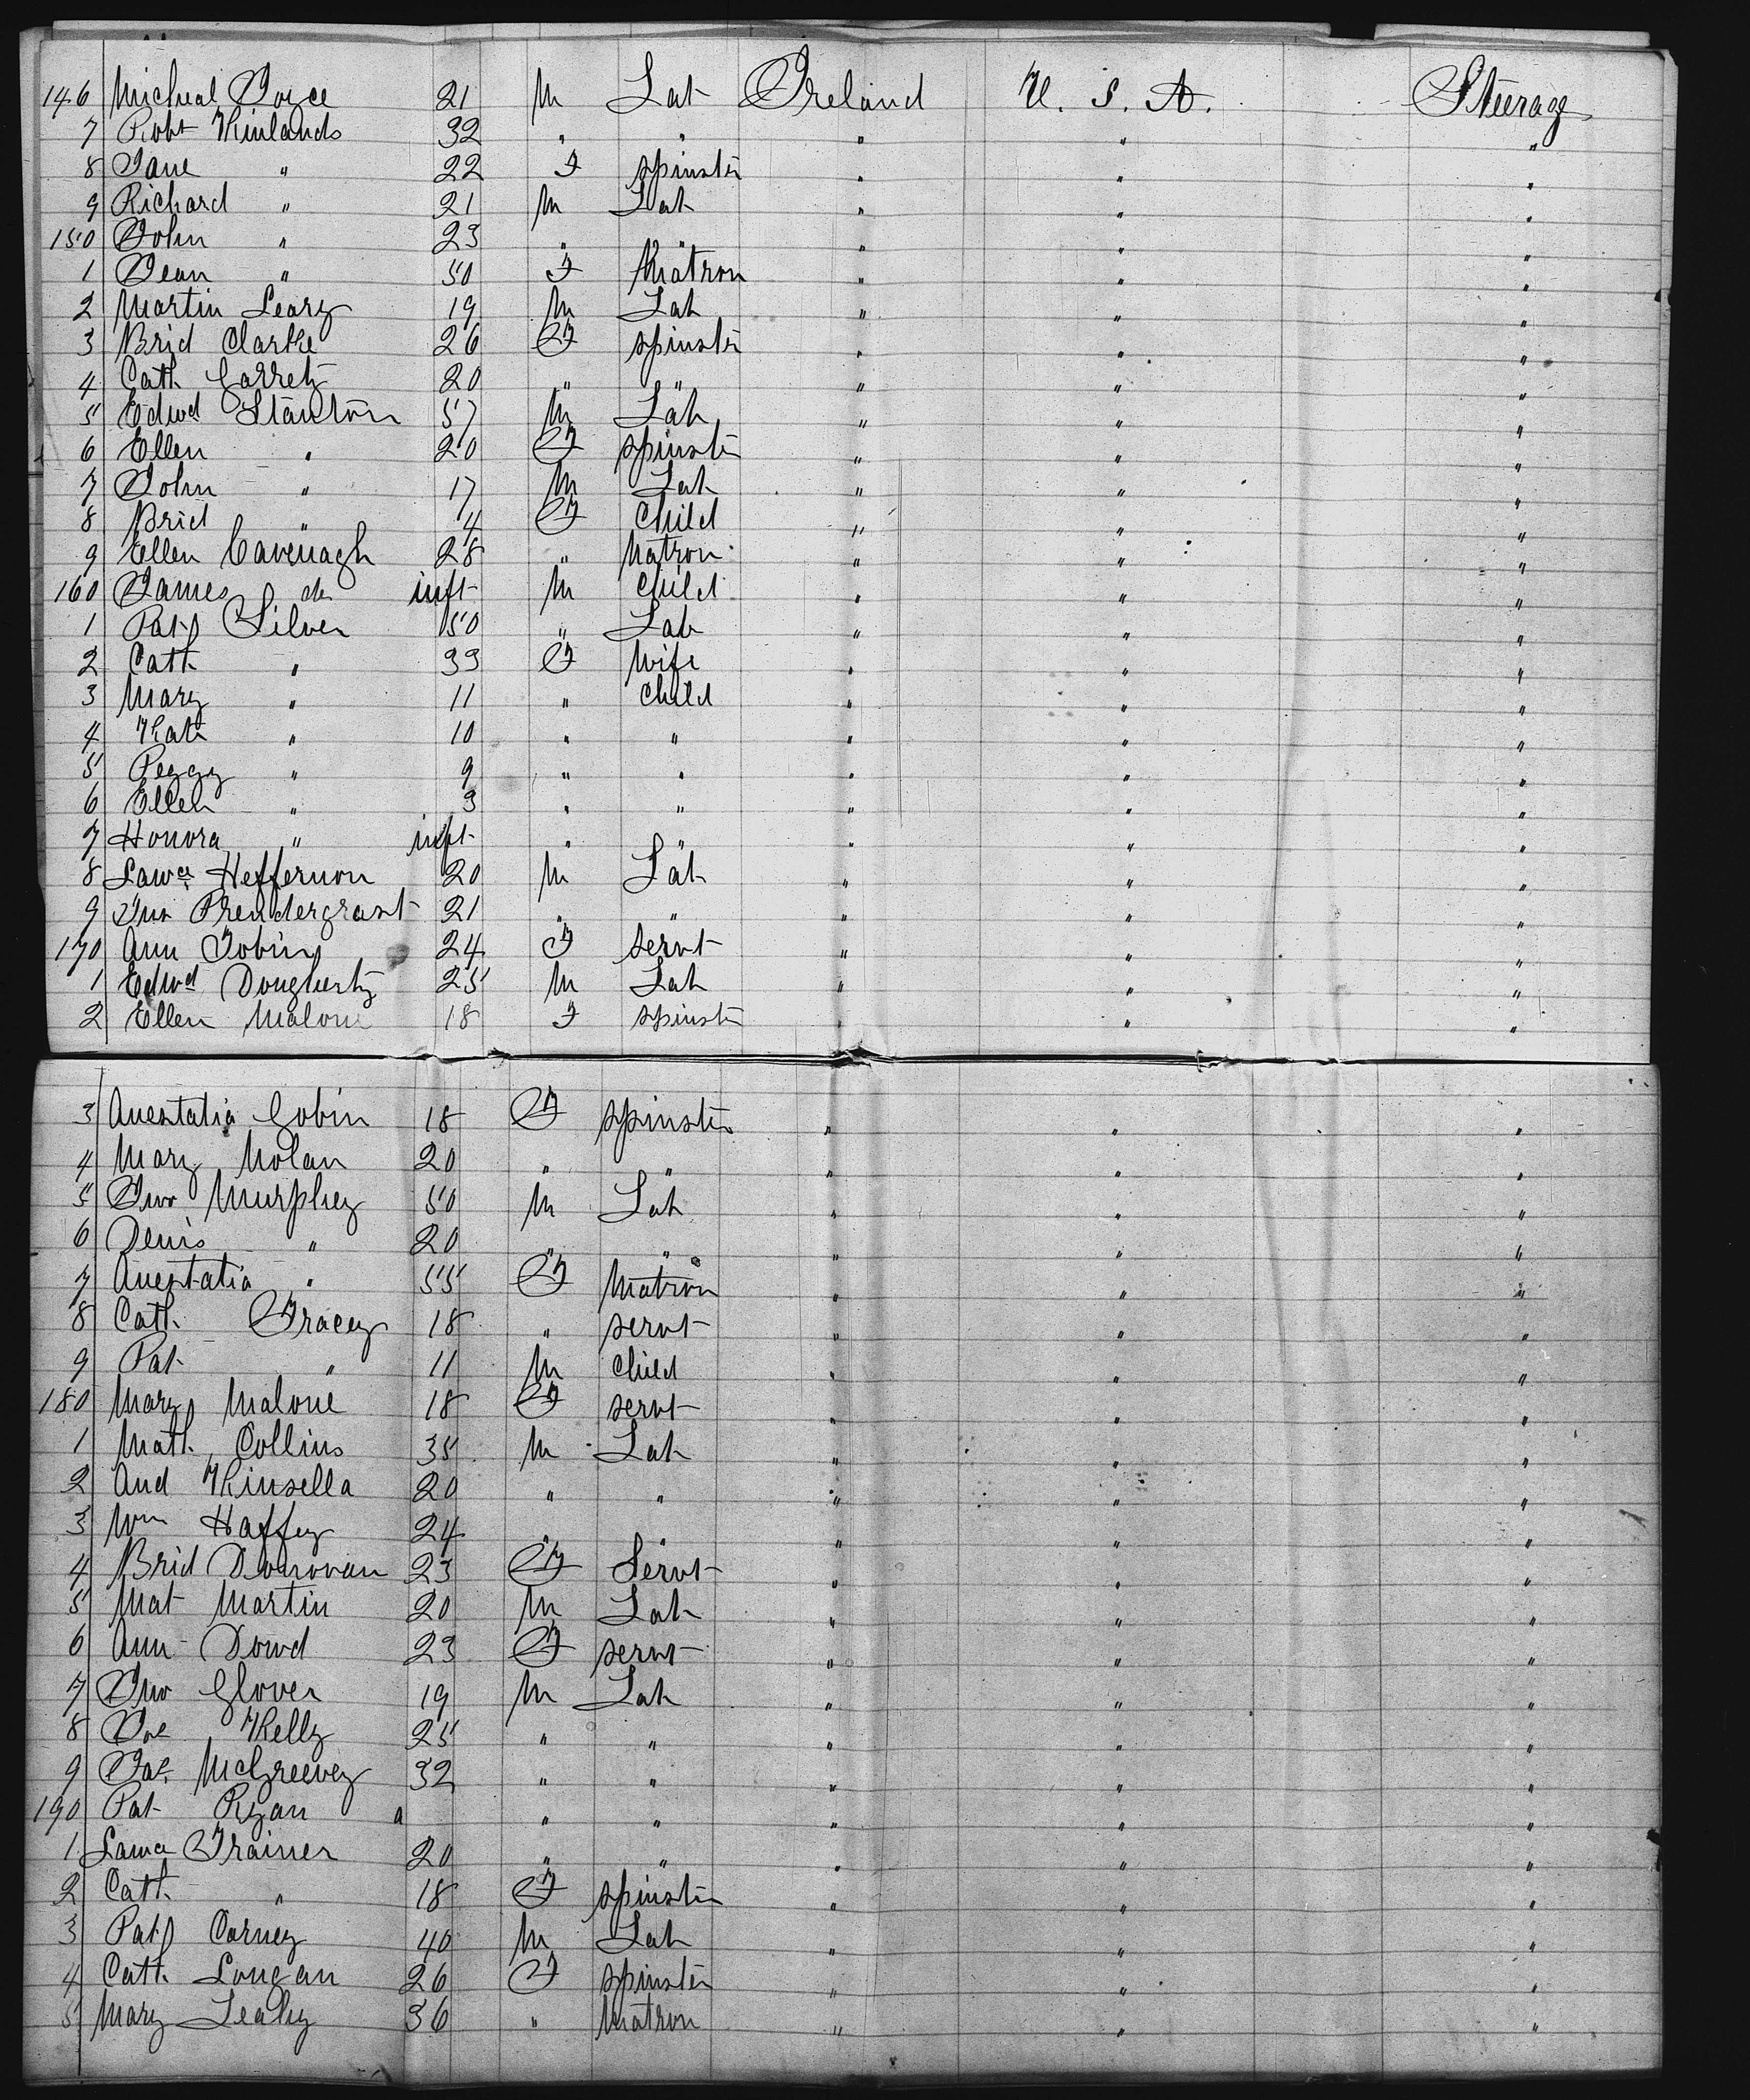 146 Micheal Joyce 21 M Lab Ireland U. S. A. Steerage
7 Robt Kinlands 32 " " " " "
8 Jane " 22 F spinster " " "
9 Richard " 21 M Lab " " "
150 John " 23 " " " " "
1 Jean " 50 F Matron " " "
2 Martin Leary 19 M Lab " " "
3 Brid Clarke 26 F spinster " " "
4 Cath Garrety 20 " " " " "
5 Edwd Stanton 57 M Lab " " "
6 Ellen " 20 F spinster " " "
7 John " 17 M Lab " " "
8 Brid " 4 F Child " " "
9 Ellen Cavenagh 28 " Matron " " "
160 James do inft M Child " " "
1 Pat Silver 50 " Lab " " "
2 Cath " 33 F Wife " " "
3 Mary " 11 " Child " " "
4 Kate " 10 " " " " "
5 Peggy " 9 " " " " "
6 Ellen " 3 " " " " "
7 Honora " inft " " " " "
8 Lawce Heffernon 20 M Lab " " "
9 Jno Prendergrast 21 " " " " "
170 Ann Tobin 24 F servt " " "
1 Edwd Dougherty 25 M Lab " " "
2 Ellen Malone 18 F spinster " " "
3 Anestatia Gobin 18 F spinster " " "
4 Mary Nolan 20 " " " " "
5 Jno Murphey 50 M Lab " " "
6 Denis " 20 " " " " "
7 Anestatia " 55 F Matron " " "
8 Cath Tracey 18 " servt " " "
9 Pat " 11 M Child " " "
180 Mary Malone 18 F servt " " "
1 Math Collins 35 M Lab " " "
2 And Kinsella 20 " " " " "
3 Wm Haffey 24 " " " " "
4 Brid Donovan 23 F Servt " " "
5 Mat Martin 20 M Lab " " "
6 Ann Dowd 23 F servt " " "
7 Jno Glover 19 M Lab " " "
8 Jos Kelly 25 " " " " "
9 Jas McGreevey 32 " " " " "
190 Pat Ryan a " " " " "
1 Lawce Trainer 20 " " " " "
2 Cath " 18 F spinster " " "
3 Pat Carney 40 M Lab " " "
4 Cath Longan 26 F spinster " " "
5 Mary Leahy 36 " Matron " " "